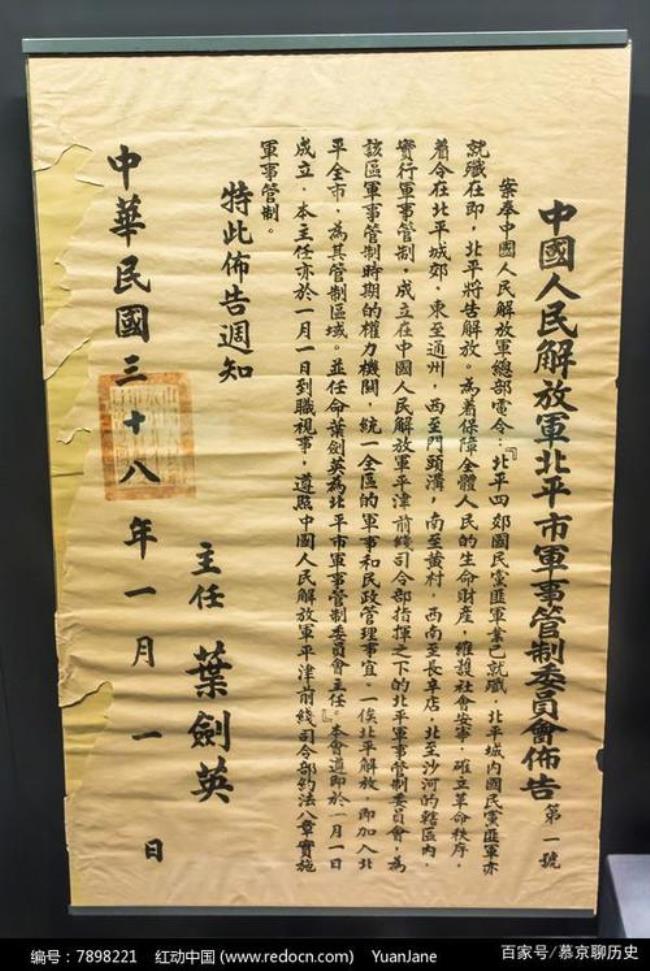 中國人民解放軍北平市軍事管制委員會佈告 第一號
案奉中國人民解放軍總部電令：『北平四郊國民黨匪軍業已就殲，北平城內國民黨匪軍亦
就殲在即，北平將告解放。為着保障全體人民的生命財產，維護社會安寧，確立革命秩序，
着令在北平城郊，東至通州，西至門頭溝，南至黃村，西南至長辛店，北至沙河的轄區內，
實行軍事管制，成立在中國人民解放軍平津前綫司令部指揮之下的北平軍事管制委員會，為
該區軍事管制時期的權力機關，統一全區的軍事和民政管理事宜。一俟北平解放，即加入北
平全市，為其管制區域。並任命葉劍英為北平市軍事管制委員會主任。』本會遵即於一月一日
成立，本主任亦於一月一日到職視事，遵照中國人民解放軍平津前綫司令部約法八章實施
軍事管制。
特此佈告週知
主任 葉劍英
中華民國三十八年一月一日
编号：7898221 红动中国 (www.redocn.com) YuanJane
百家号/慕京聊历史